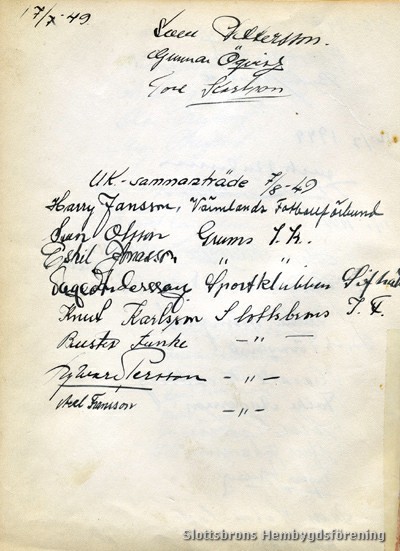 17/7-49
Sven Pettersson.
Gunnar Öqvist
Tore
UK.-sammanträde 7/8-49
Harry Jansson, Värmlands Fotbollförbund
Sven Olsson Grums I.K.
Eskil Jonasson " "
Inge Andersson Sportklubben
Knut Karlsson Slottsbrons I.F.
Buster Funke -"-
Persson -"-
Axel Fransson -"-
Slottsbrons Hembygdsförening